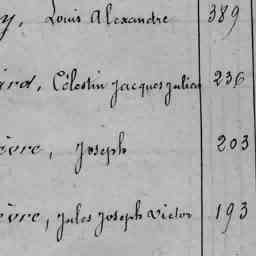 y, Louis Alexandre 389
ard, Célestin Jacques Julien 236
èvre, Joseph 203
èvre, Jules Joseph Victor 193